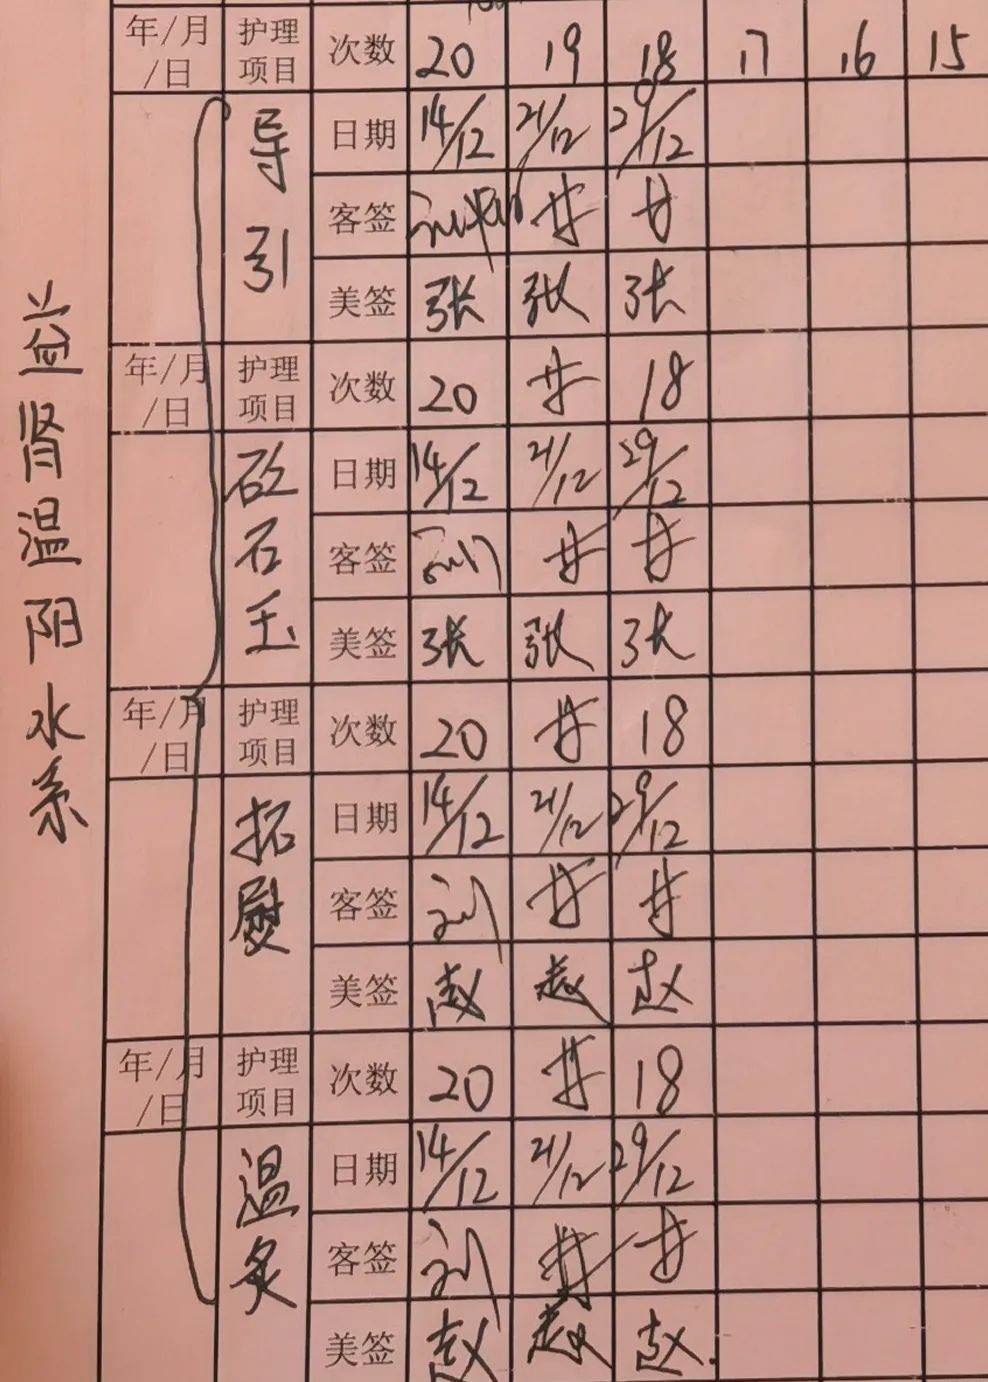 益肾温阳水系
年/月/日 护理项目 次数 20 19 18 17 16 15
导引 日期 14/12 21/12 29/12
客签
美签 张 张 张
年/月/日 护理项目 次数 20 18
砭石玉 日期 14/12 21/12 29/12
客签
美签 张 张 张
年/月/日 护理项目 次数 20 18
拓熨 日期 14/12 21/12 29/12
客签 刘
美签 赵 赵 赵
年/月/日 护理项目 次数 20 18
温炙 日期 14/12 21/12 29/12
客签 刘
美签 赵 赵 赵